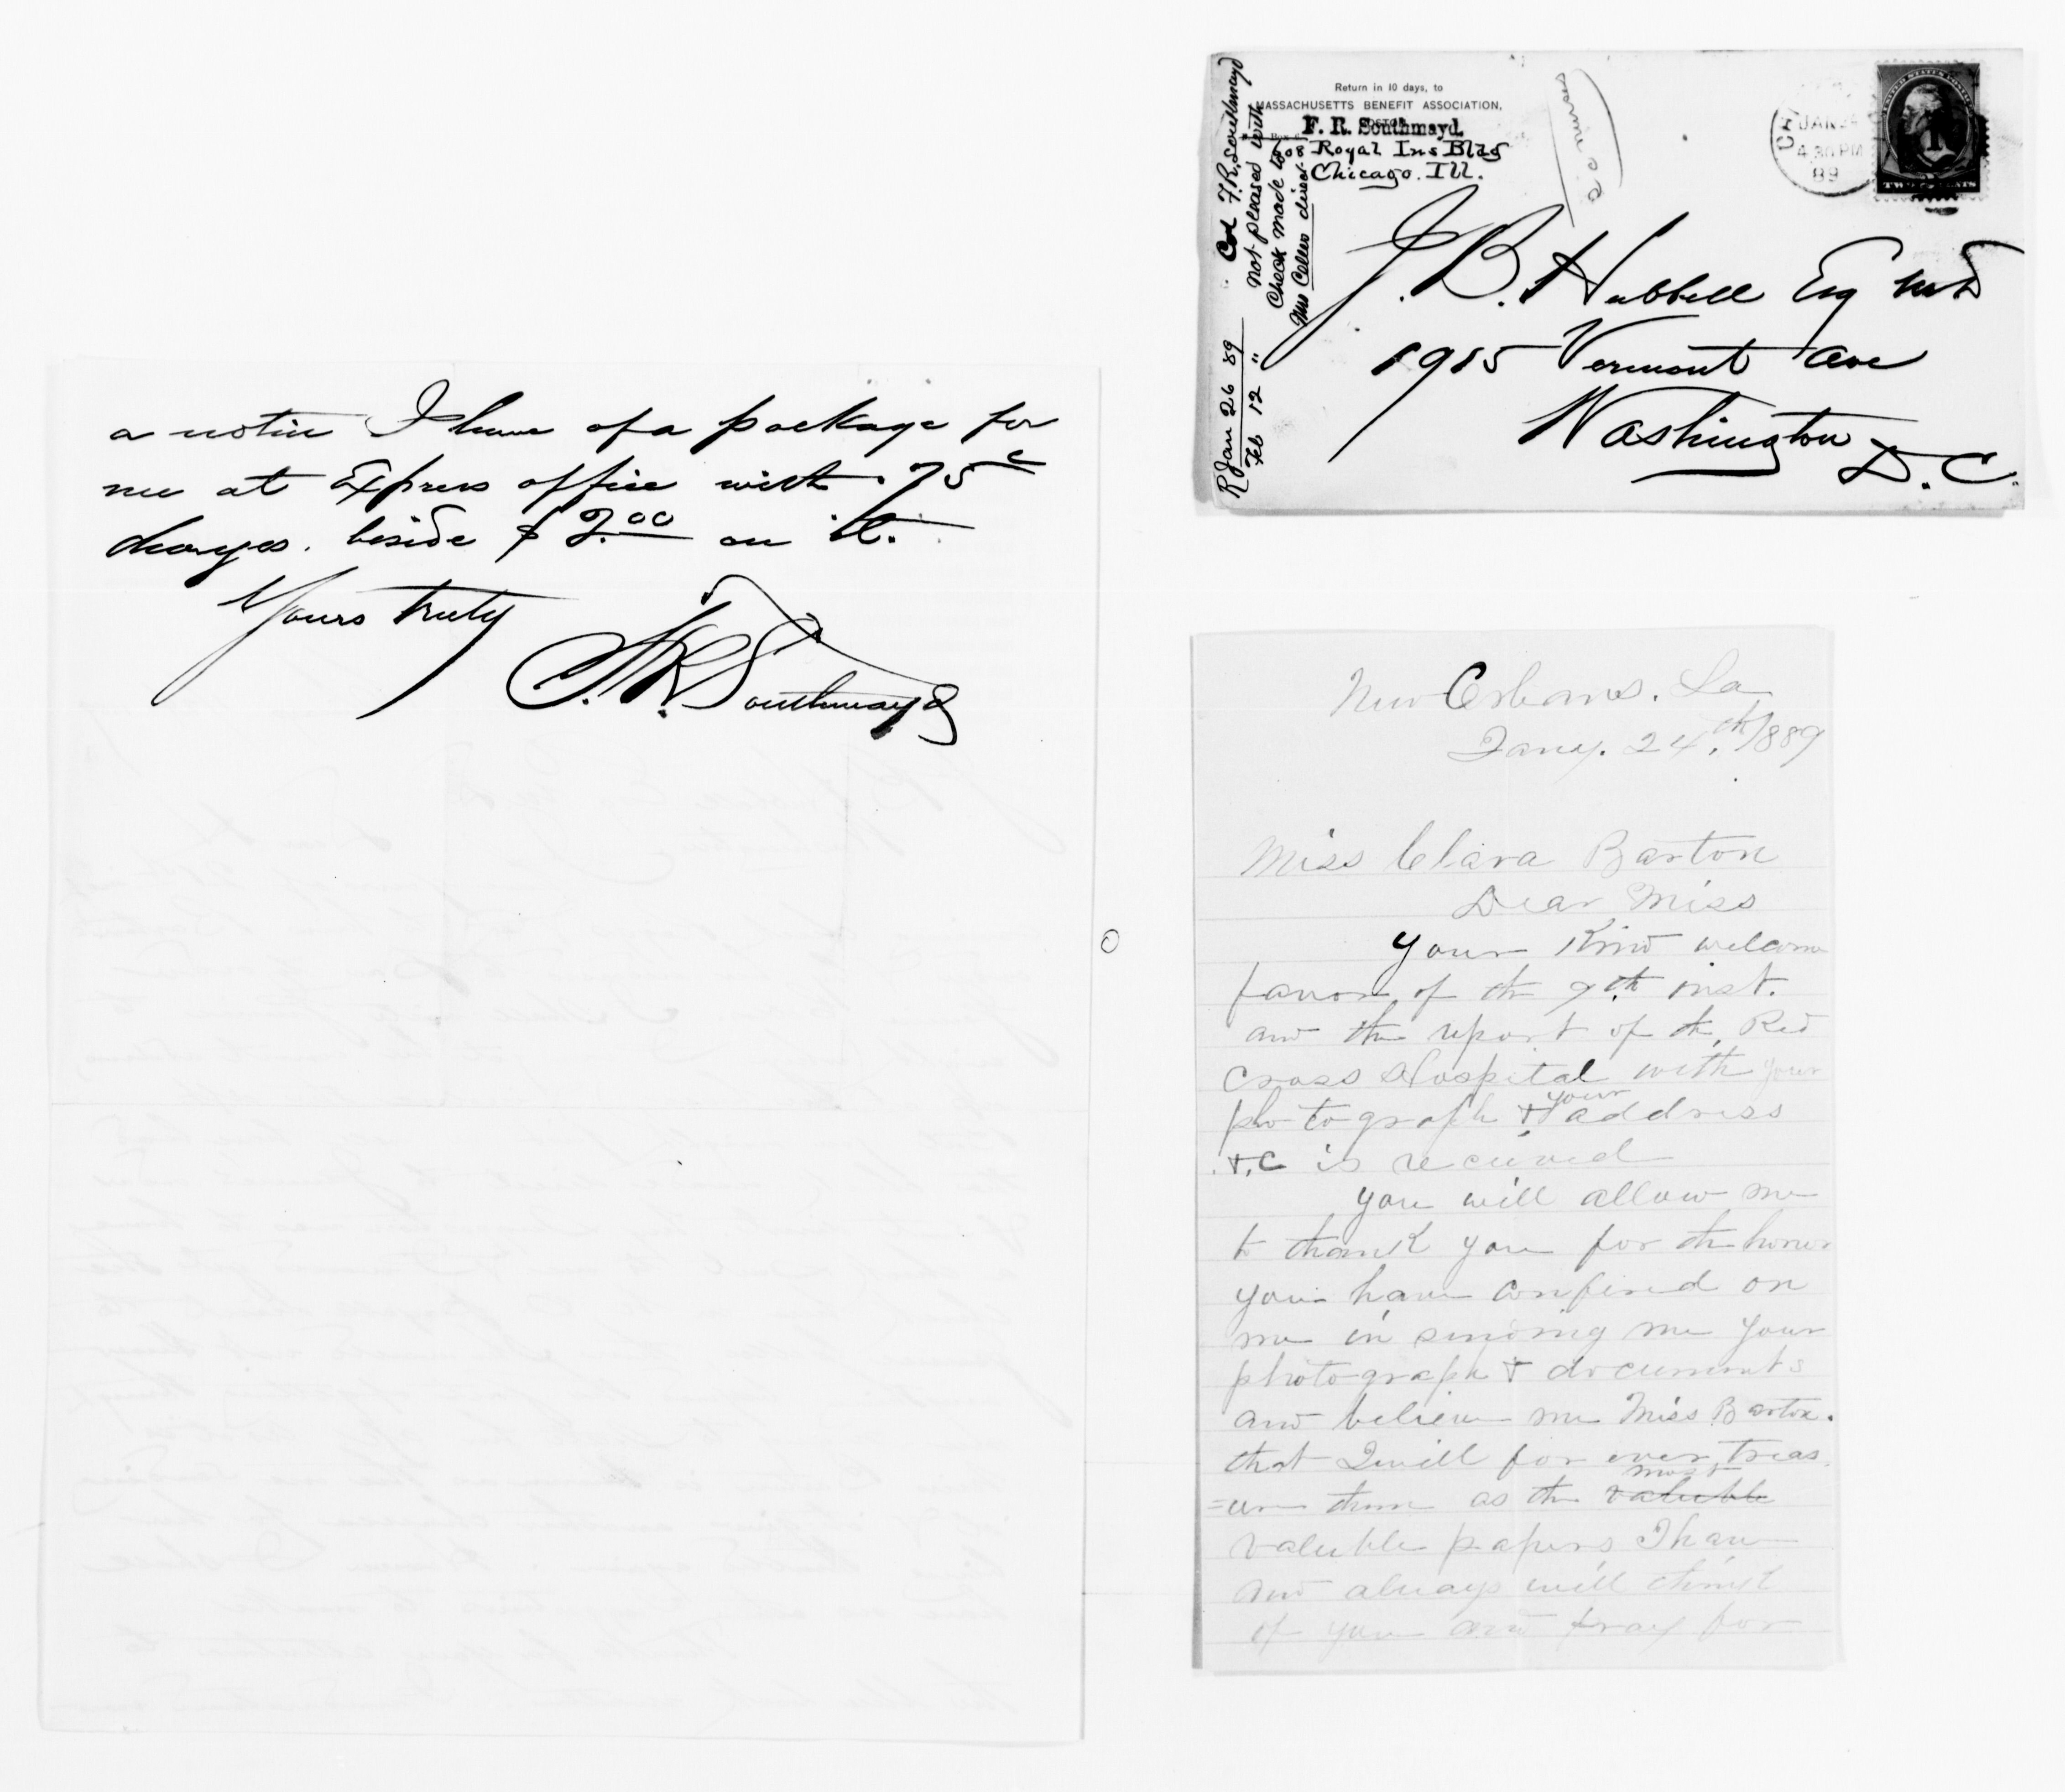 a notice I have of a package for
me at Express office with .75c
charges. beside $2.00 on it.
Yours truly
F. R. Southmayd
Return in 10 days, to
MASSACHUSETTS BENEFIT ASSOCIATION,
F. R. Southmayd.
608 Royal Ins Bldg
Chicago. Ill.
D C nurses
JAN 24
4 30 PM
89
UNITED STATES POSTAGE
TWO CENTS
J. B. Hubbell Esq M.D
1915 Vermont Ave
Washington
D. C.
R Jan 26 89
Feb 12 "
Col F. R. Southmayd
not pleased with
Check made to
Mrs direct
New Orleans. La
Jany. 24.th/889
Miss Clara Barton
Dear Miss
Your Kind welcome
favor of the 9th inst.
and the report of the Red
Cross Hospital with your
photograph & your address
&.C is received
you will allow me
to thank you for the honor
you have confired on
me in sending me your
photograph & documents
and believe me Miss Barton.
that I will for ever treas
=ure them as the most valuble
valuble papers I have
and always will think
of you and pray for